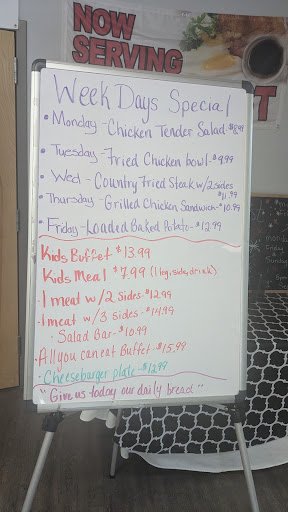 NOW
SERVING
Week Days Special
• Monday - Chicken Tender Salad - $8.99
• Tuesday - Fried Chicken bowl - $9.99
• Wed - Country Fried Steak w/2 sides
$11.99
• Thursday - Grilled Chicken Sandwich - $10.99
• Friday - Loaded Baked Potato - $12.99
Kids Buffet $13.99
Kids Meal $7.99 (1 leg, side, drink)
· 1 meat w/ 2 sides - $12.99
· 1 meat w/ 3 sides - $14.99
· Salad Bar - $10.99
· All you can eat Buffet - $15.99
· Cheeseburger plate - $12.99
"Give us today our daily bread"